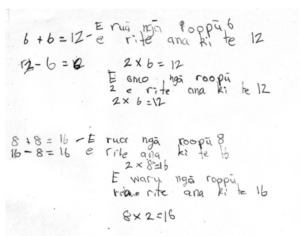 6 + 6 = 12 - E rua ngā roopū 6
e rite ana ki te 12
12 - 6 = 6
2 x 6 = 12
E ono ngā roopū
2 e rite ana ki te 12
2 x 6 = 12
8 + 8 = 16 - E rua ngā roopū 8
16 - 8 = 16 e rite ana ki te 16
2 x 8 = 16
E waru ngā roopū
rite ana ki te 16
8 x 2 = 16